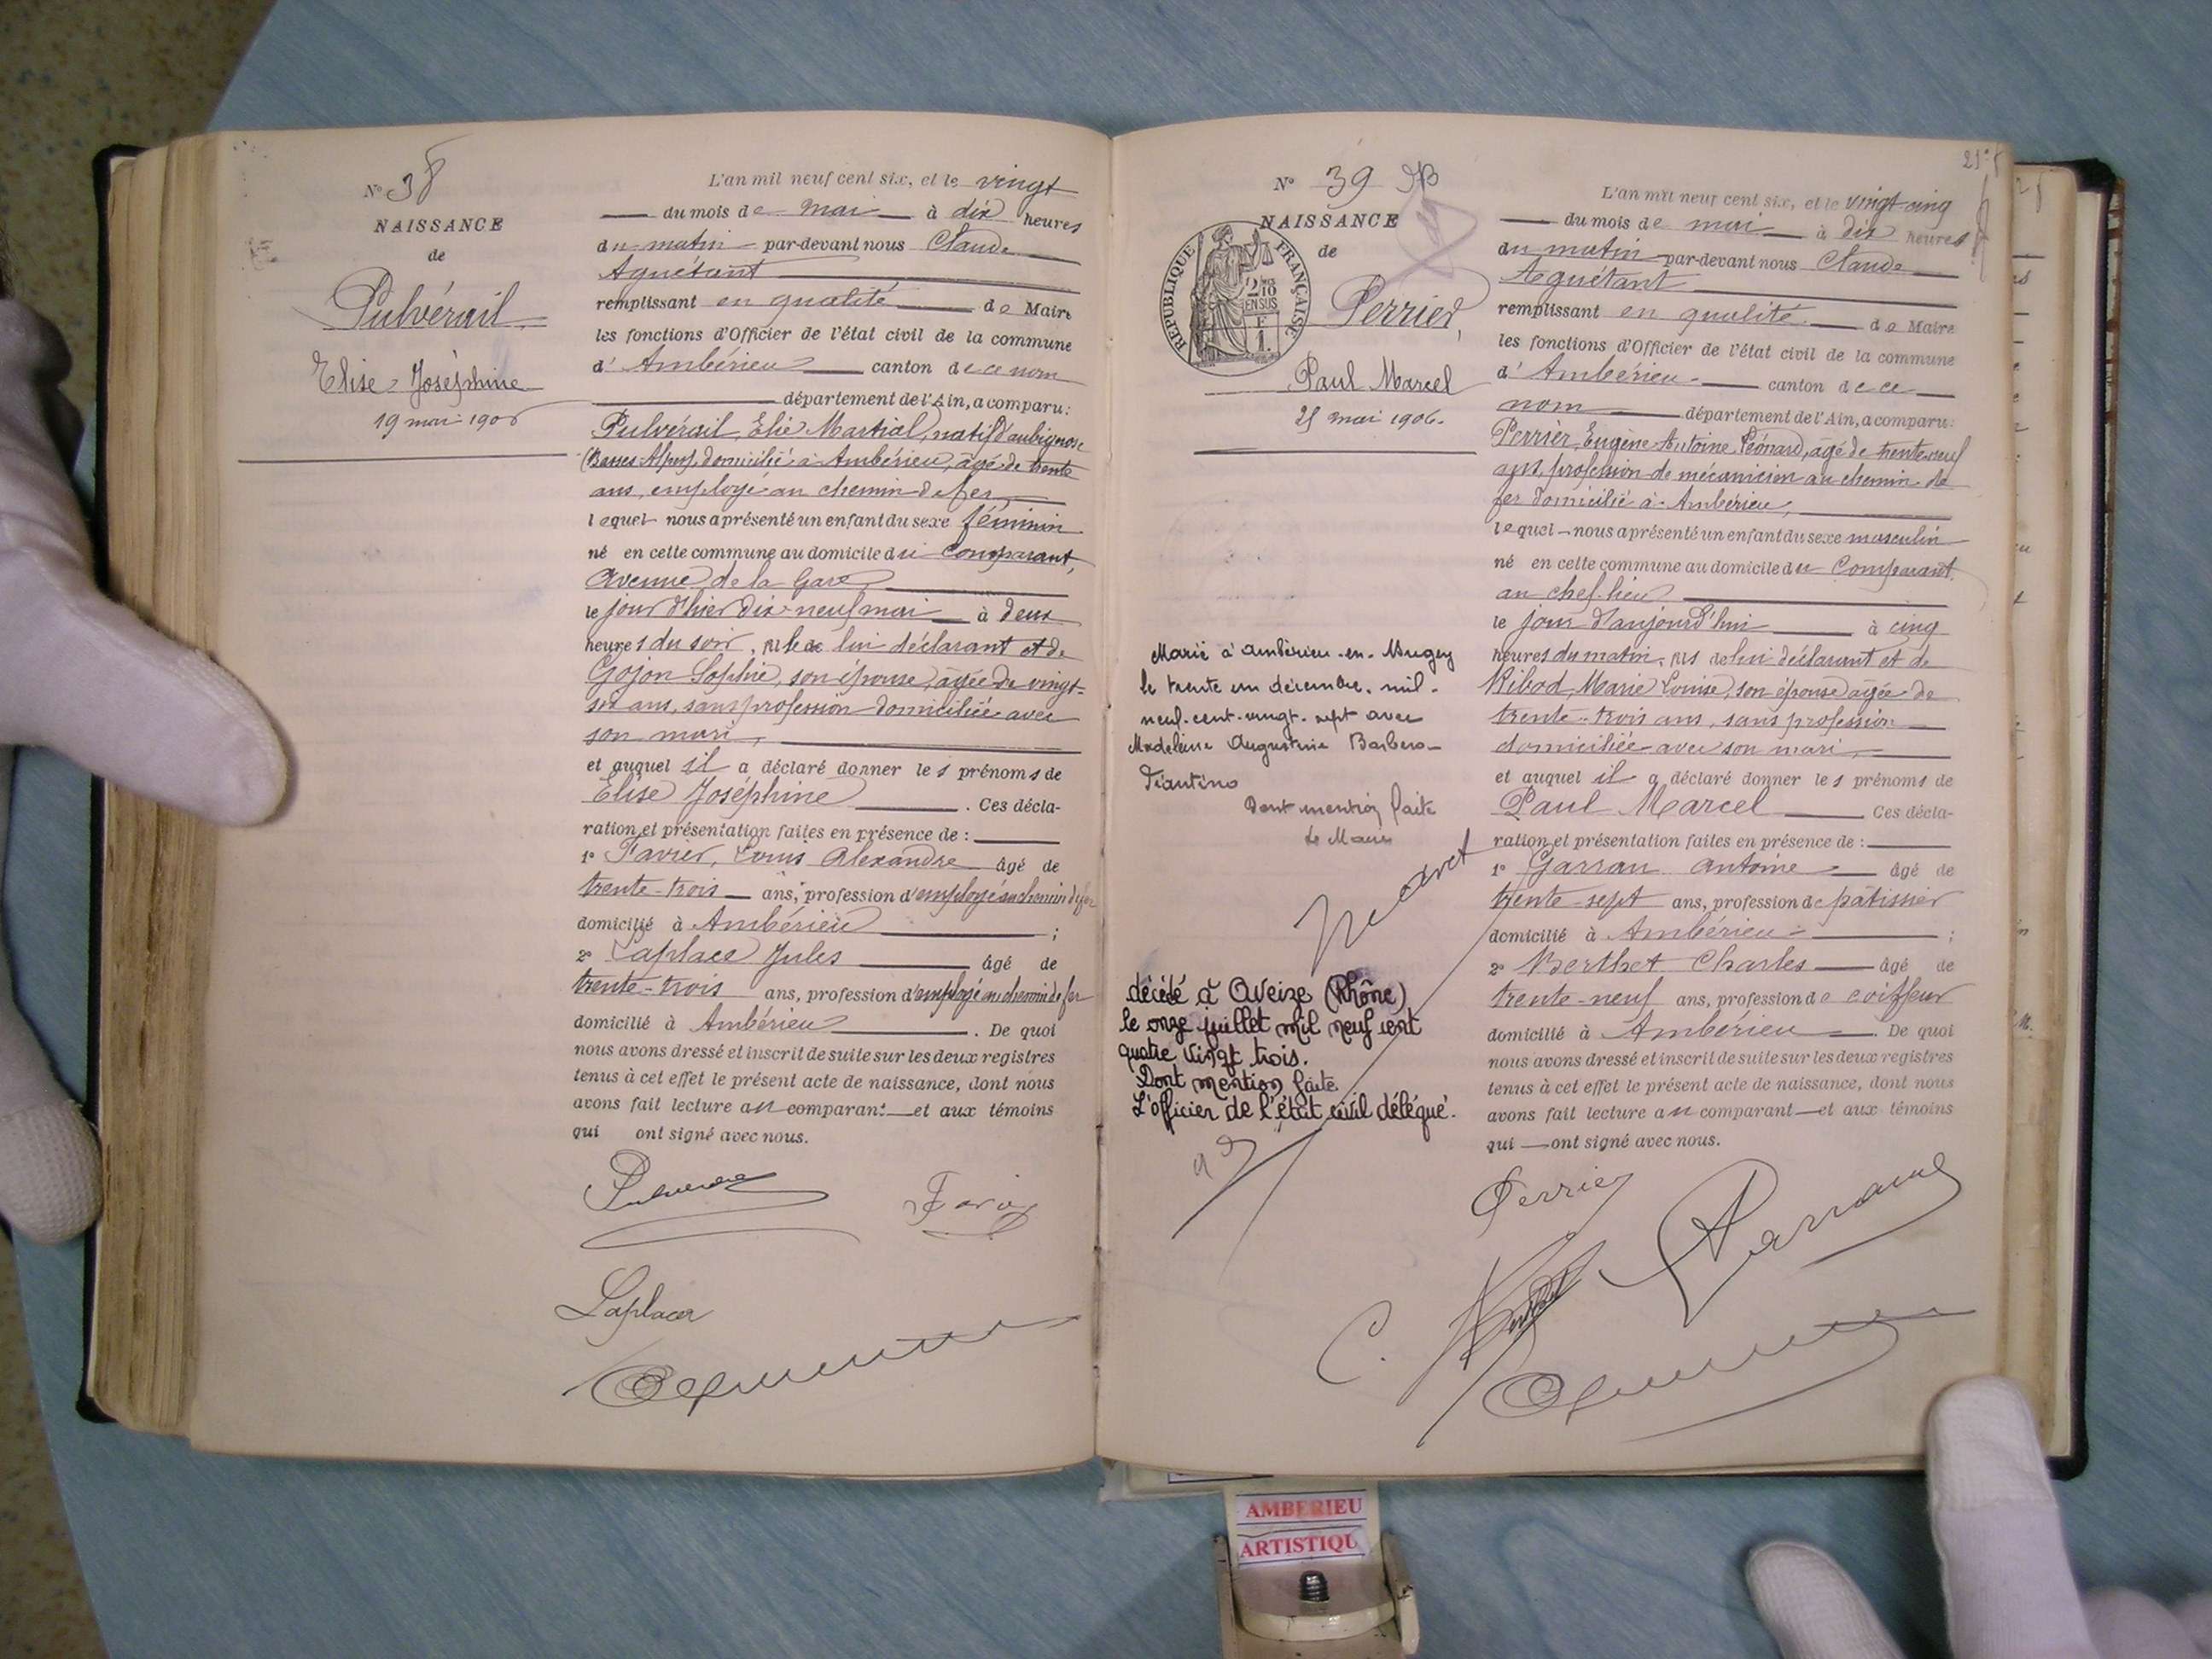 N° 38
NAISSANCE
de
Pulvérail
Elise Joséphine
19 mai 1906
L'an mil neuf cent six, et le vingt
du mois de mai à dix heures
du matin par-devant nous Claude
Aguétant
remplissant en qualité de Maire
les fonctions d'Officier de l'état civil de la commune
d' Ambérieu canton de ce nom
département de l'Ain, a comparu:
Pulvérail, Elie Martial, natif d'aubignosc
(Basses Alpes), domicilié à Ambérieu, âgé de trente
ans, employé au chemin de fer,
lequel nous a présenté un enfant du sexe féminin
né en cette commune au domicile du Comparant,
Avenue de la Gare
le jour d'hier dix-neuf mai à deux
heures du soir, de lui déclarant et de
Gojon Sophie, son épouse, âgée de vingt-
six ans, sans profession domiciliée avec
son mari,
et auquel il a déclaré donner les prénoms de
Elise Joséphine. Ces décla-
ration et présentation faites en présence de :
1° Favier, Louis Alexandre âgé de
trente-trois ans, profession d'employé au chemin de fer
domicilié à Ambérieu ;
2° Laplace Jules âgé de
trente-trois ans, profession d'employé au chemin de fer
domicilié à Ambérieu. De quoi
nous avons dressé et inscrit de suite sur les deux registres
tenus à cet effet le présent acte de naissance, dont nous
avons fait lecture au comparant et aux témoins
qui ont signé avec nous.
Laplace
N° 39
NAISSANCE
de
RÉPUBLIQUE FRANÇAISE
2/10 EN SUS
Perrier,
Paul Marcel
25 mai 1906.
Marié à Ambérieu-en-Bugey
le trente un décembre mil-
neuf-cent-vingt-sept avec
Madeleine Augustine Barbero-
Tiantino
Dont mention faite
Le Maire
décédé à Aveize (Rhône)
le onze juillet mil neuf cent
quatre vingt trois.
Dont mention faite
L'officier de l'état civil délégué.
L'an mil neuf cent six, et le vingt-cinq
du mois de mai à dix heures
du matin par-devant nous Claude
Aguétant
remplissant en qualité de Maire
les fonctions d'Officier de l'état civil de la commune
d' Ambérieu canton de ce
nom département de l'Ain, a comparu:
Perrier, Eugène Antoine Léonard, âgé de trente-neuf
ans, profession de mécanicien au chemin de
fer domicilié à Ambérieu,
lequel nous a présenté un enfant du sexe masculin
né en cette commune au domicile du Comparant,
au chef-lieu
le jour d'aujourd'hui à cinq
heures du matin, fils de lui déclarant et de
Ribod, Marie Louise, son épouse âgée de
trente-trois ans, sans profession
domiciliée avec son mari,
et auquel il a déclaré donner les prénoms de
Paul Marcel Ces décla-
ration et présentation faites en présence de :
1° Garran Antoine âgé de
trente-sept ans, profession de pâtissier
domicilié à Ambérieu ;
2° Berthet Charles âgé de
trente-neuf ans, profession de coiffeur
domicilié à Ambérieu. De quoi
nous avons dressé et inscrit de suite sur les deux registres
tenus à cet effet le présent acte de naissance, dont nous
avons fait lecture au comparant et aux témoins
qui ont signé avec nous.
Perrier
AMBERIEU
ARTISTIQU